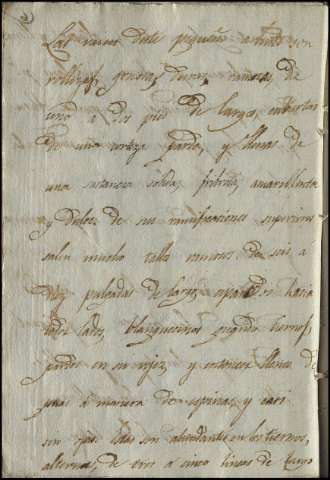 Las raices deste pequeño arbusto son
rollizas, gruesas, duras, ramosas, de
uno a dos pies de largo, cubiertas
de una corteza parda, y llenas de
una sustancia solida, fribrosa, amarillenta
y dulce, de sus ramificaciones superiores
salen muchos tallos ramosos de seis á
diez pulgadas de largo, esparcidos hacia
todos lados, blanquecinos quando tiernos,
pardos en su vejez, y entonces llenos de
puas á manera de espinas, y casi
sin ojas. Estas son abundantes en los tiernos,
alternas, de tres a cinco lineas de largo